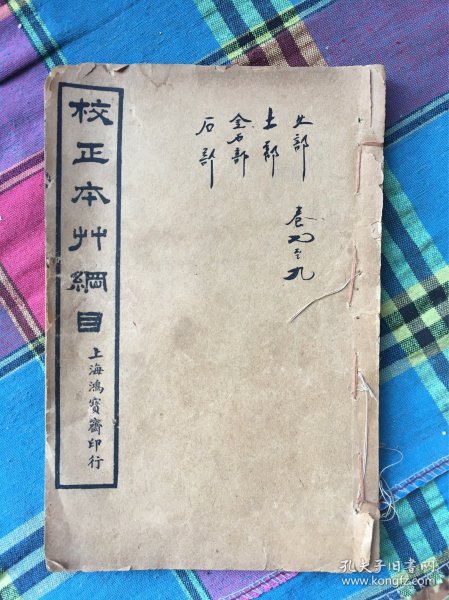 校正本艸綱目
上海鴻寶齋印行
火部
土部
金石部
石部
卷六至九
孔夫子旧书网
www.kongfz.com